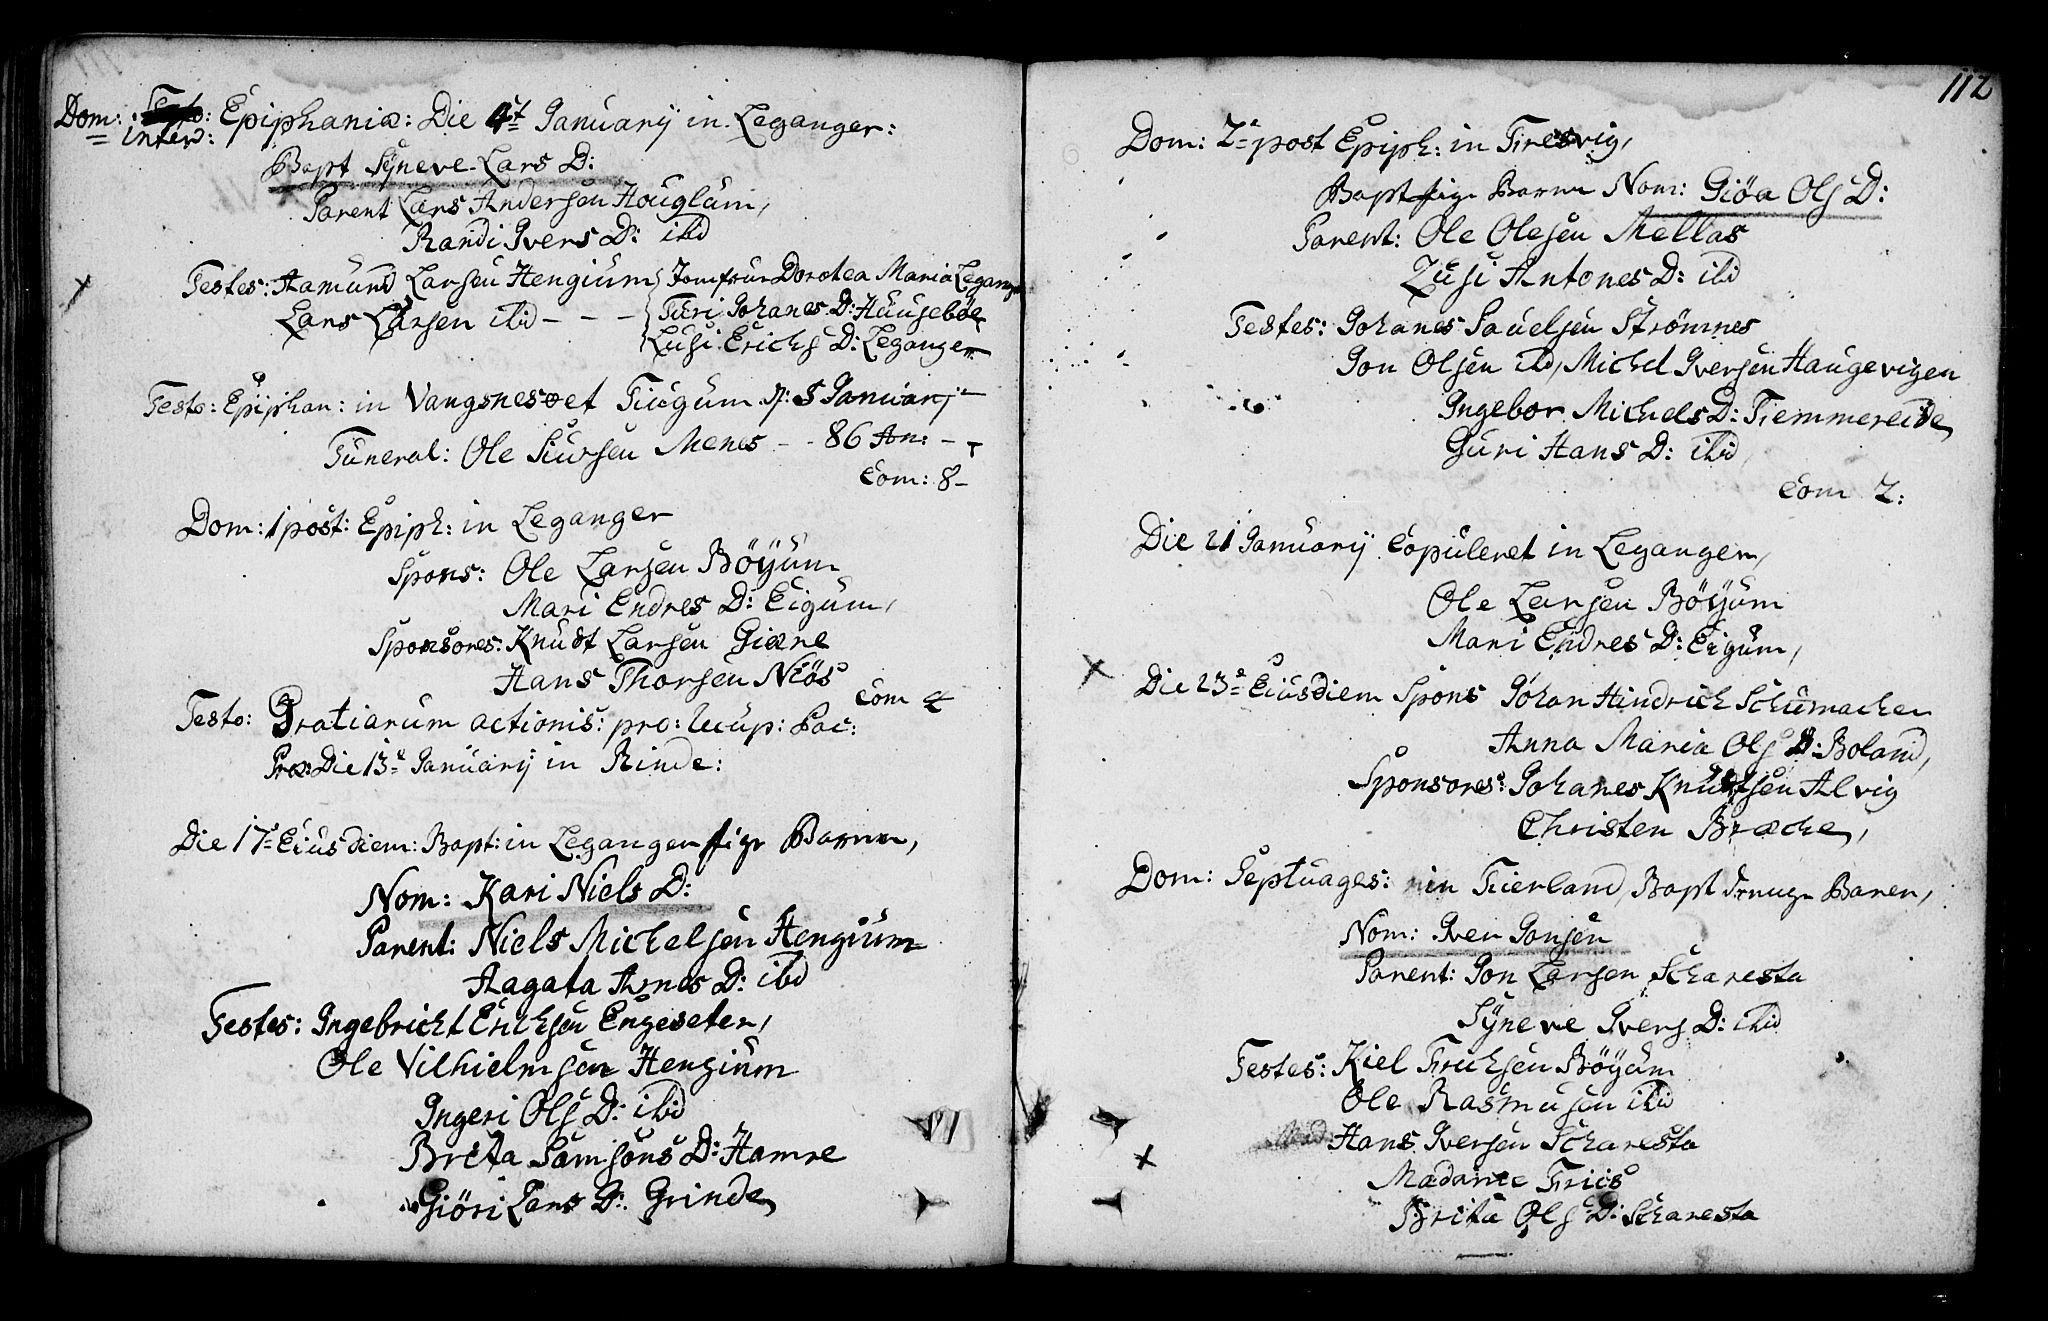 Dom: Epiphaniæ: Die 4t Januarij in Leganger:
inter:
Bapt Syneve Lars D:
Parent Lars Andersen Houglum,
Randi Ivers D: ibid
Testes: Aamund Larsen Hengium Jomfrue Dorotea Maria Leganger
Lars Larsen ibid - - - Turi Johanes D: Hausebøe
Lusi Erichs D: Leganger
Festo: Epiphan: in Vangsnes et Fugum 5 Januarij
Funeral: Ole Siursen Menes - - 86 An: -
Com: 8-
Dom: 1 post: Epiph: in Leganger
Spons: Ole Larsen Böyum
Mari Endres D: Eigum,
Sponsores: Knudt Larsen Giære
Hans Thorsen Niös
Com 4
Festo: Gratiarum actionis: pro: Pac:
Die 13e Januarij in Rinde:
Die 17e Eiusdiem: Bapt: in Leganger pige Barnn,
Nom: Kari Niels D:
Parent: Niels Michelsen Hengium
Aagata Arnes D: ibd
Testes: Ingebricht Erichsen Engeseter,
Ole Vilhielmsen Hengium
Ingeri Ols D: ibid
Brita Samsons D: Hamre
Giöri Lars D: Grinde
112
Dom: 2e post Epiph: in Fresvig,
Bapt pige Barnn Nom: Giöa Ols D:
Parent: Ole Olesen Mellas
Lusi Antones D: ibid
Testes: Johanes Sauelsen Strömnes
Jon Olsen ibd, Michel Iversen Haugevigen
Ingebor Michels D: Tiemmereide
Guri Hans D: ibid
Com 2:
Die 21 Januarij Copuleret in Leganger,
Ole Larsen Böyum
Mari Endres D: Eigum,
Die 23e Eiusdiem Spons Johan Hindrich Schumacher
Anna Maria Ols D: Boland,
Sponsores: Johanes Knudtsen Alvig
Christen Bracke,
Dom: Septuages: in Fierland, Bapt Drenge Baren,
Nom: Iver Jonsen
Parent: Jon Larsen Scharesta
Syneve Ivers D: ibid
Testes: Kiel Böyum
Ole Rasmusen ibid
Hans Iversen Scharesta
Madame Friis
Brita Ols D: Scharesta